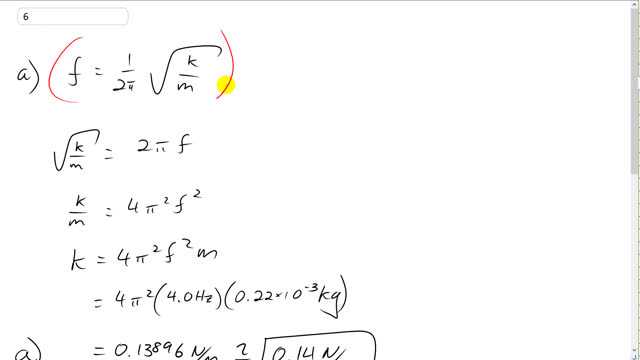 6
a) ( f = 1/2π √(k/m) )
√(k/m) = 2π f
k/m = 4π² f²
k = 4π² f² m
= 4π² (4.0Hz) (0.22×10⁻³ kg)
a) = 0.13896 N/m ≈ 0.14 N/